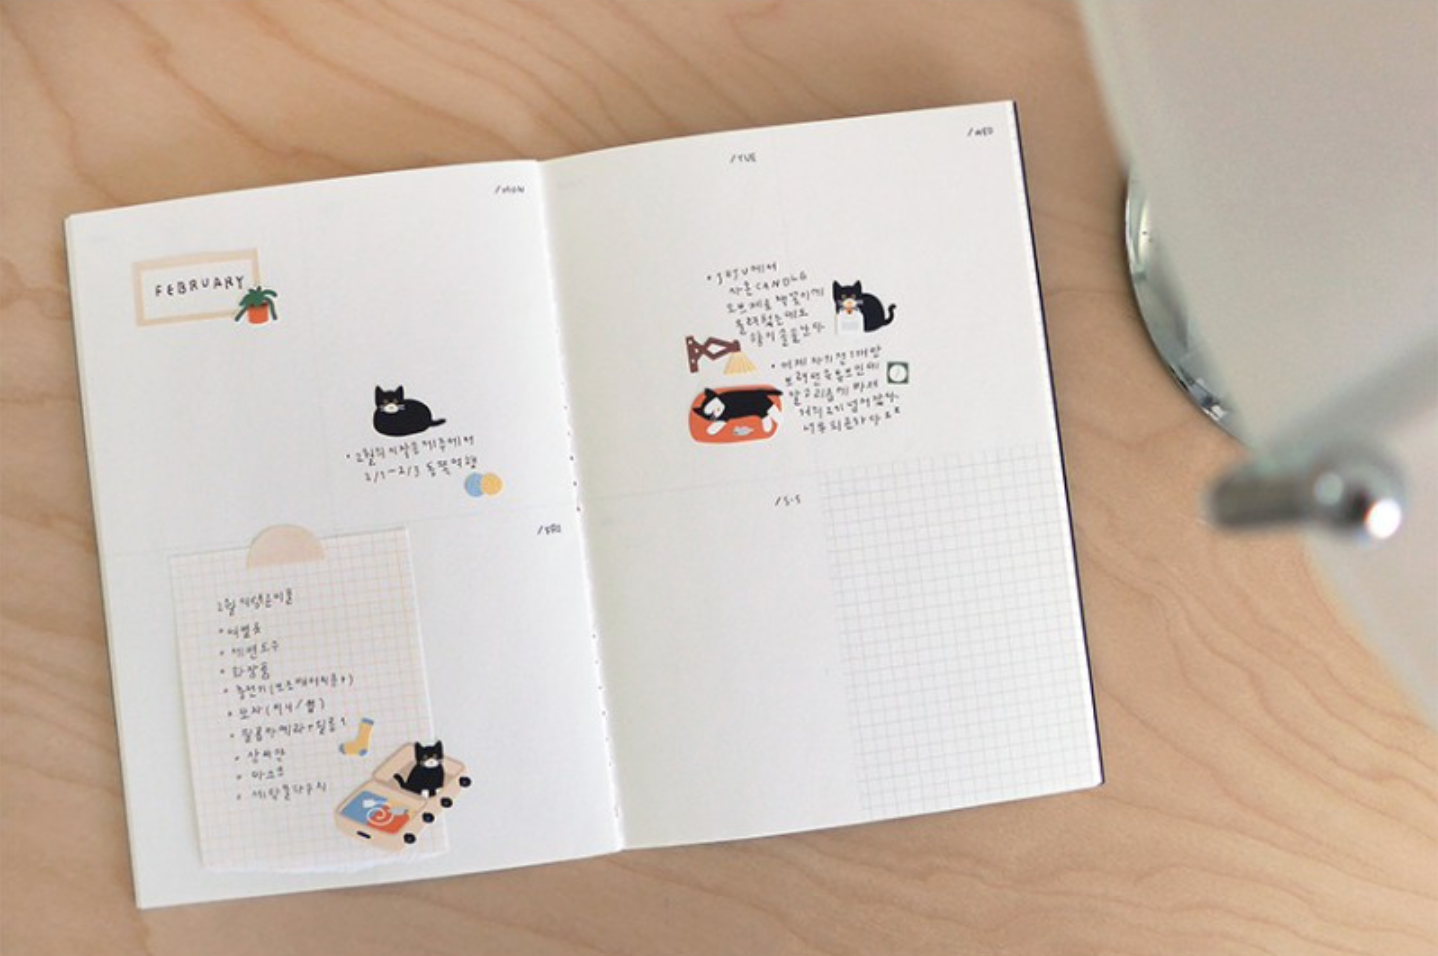 /MON
FEBRUARY
· 2월의 시작은 제주에서
2/1-2/3 동쪽여행
/FRI
2월 여행준비물
· 여벌옷
· 세면도구
· 화장품
· 충전기(보조배터리필수)
· 모자(비니/햇)
· 필름카메라+필름1
· 상비약
· 마스크
/TUE
/WED
· JEJU에서
사온 CANDLE
오브제로 책꽂이에
올려뒀는데도
향이 솔솔난다
· 어제 자기 전
알고리즘에 빠져
너무 피곤하다ㅠㅠ
/S·S